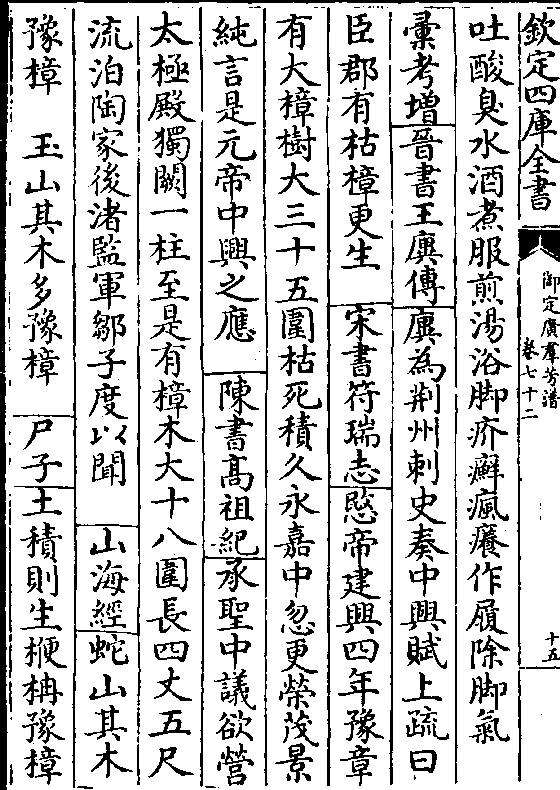 欽定四庫全書
御定廣羣芳譜
卷七十二
十五
吐酸臭水酒煮服煎湯浴脚疥癬瘋癢作履除脚氣
彚考增晉書王廙傳廙為荆州刺史奏中興賦上疏曰
臣郡有枯樟更生 宋書符瑞志愍帝建興四年豫章
有大樟樹大三十五圍枯死積久永嘉中忽更榮茂景
純言是元帝中興之應 陳書髙祖紀承聖中議欲營
太極殿獨闕一柱至是有樟木大十八圍長四丈五尺
流泊陶家後渚監軍鄒子度以聞 山海經蛇山其木
豫樟 玉山其木多豫樟 尸子土積則生楩枬豫樟